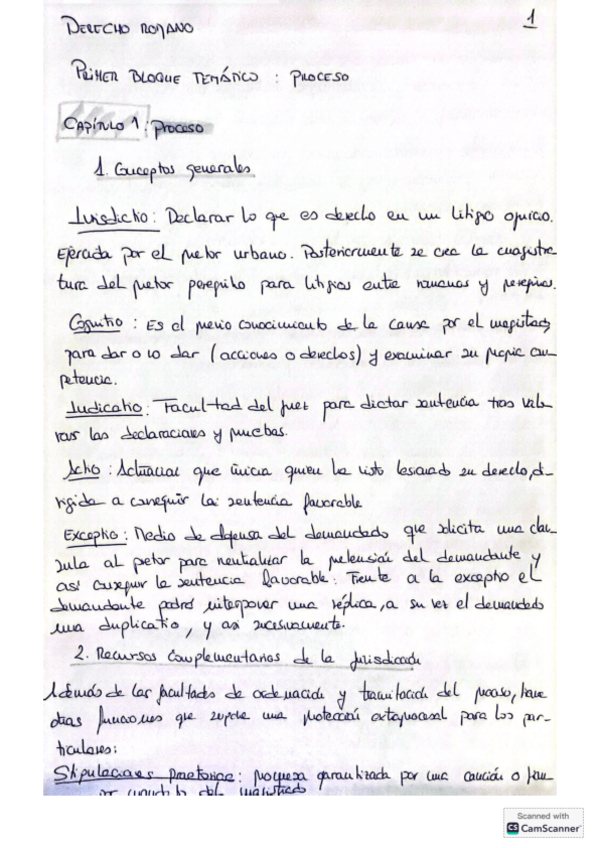 DERECHO ROMANO
1
PRIMER BLOQUE TEMÁTICO : PROCESO
CAPÍTULO 1 : PROCESO
1. Conceptos generales
Iurisdictio : Declarar lo que es derecho en un litigio
Ejercida por el pretor urbano. Posteriormente se crea la magistra
tura del pretor peregrino para litigios entre romanos y peregrinos.
Cognitio : Es el previo conocimiento de la causa por el magistrado
para dar o no dar (acciones o derechos) y examinar su propia com-
petencia.
Iudicatio : Facultad del juez para dictar sentencia tras valo
rar las declaraciones y pruebas.
Actio : Actuación que inicia quien ha visto lesionado su derecho, di-
rigida a conseguir la sentencia favorable
Exceptio : Medio de defensa del demandado que solicita una cláu
sula al pretor para neutralizar la pretensión del demandante y
así conseguir la sentencia favorable. Frente a la exceptio el
demandante podrá interponer una réplica, a su vez el demandado
una duplicatio, y así sucesivamente.
2. Recursos complementarios de la jurisdicción
Además de las facultades de ordenación y tramitación del proceso, tiene
otras funciones que supone una protección extraprocesal para los par-
ticulares:
Stipulaciones praetoriae : promesa garantizada por una caución o
del magistrado
Scanned with
CS CamScanner